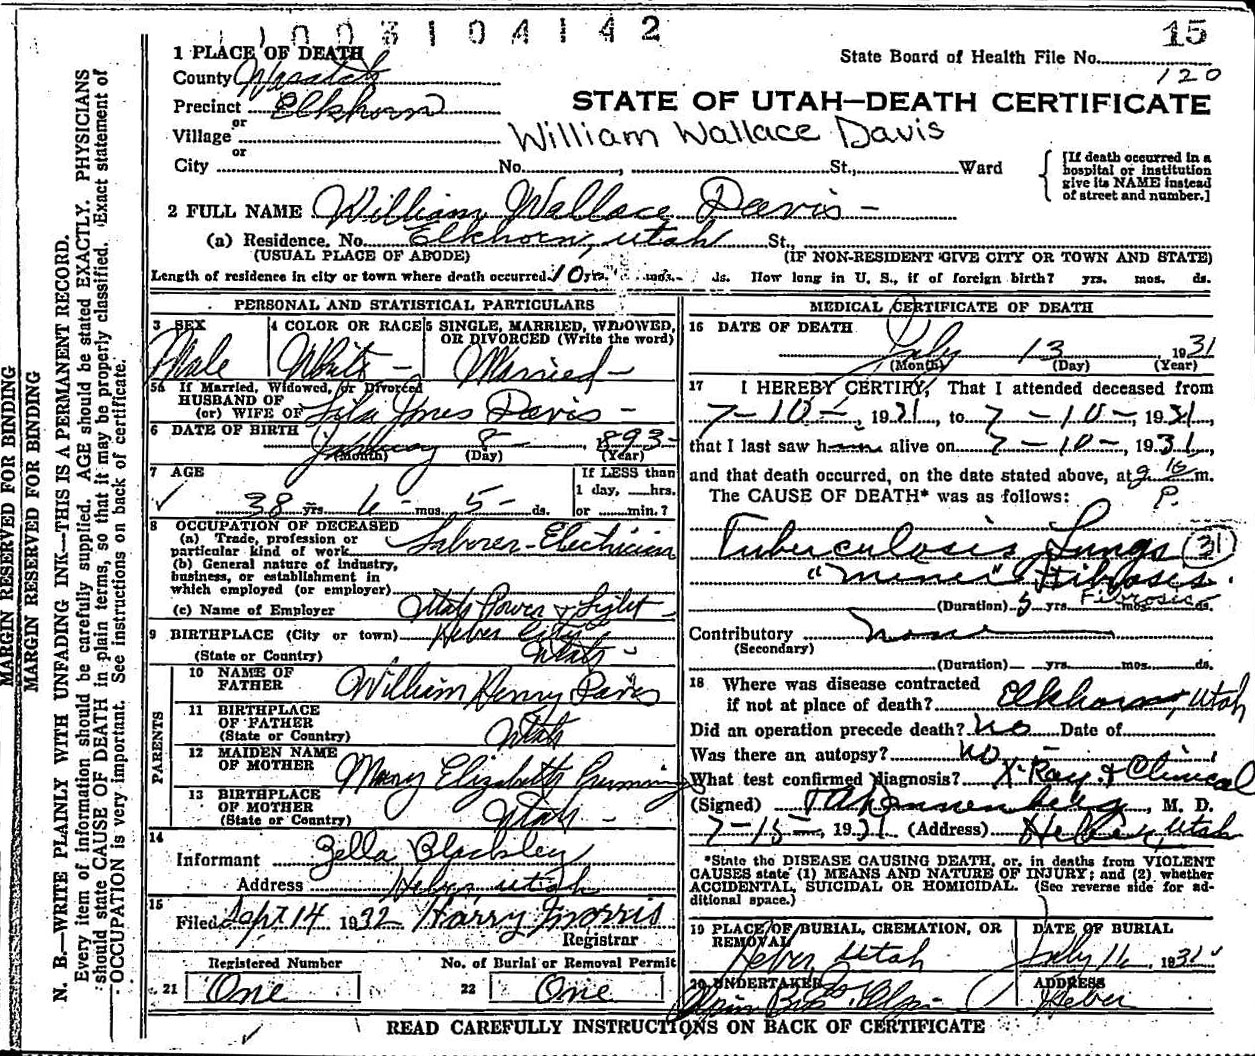 1003104142
15
1 PLACE OF DEATH
State Board of Health File No.
120
County Wasatch
Precinct Elkhorn
or
STATE OF UTAH—DEATH CERTIFICATE
Village
William Wallace Davis
or
City No. , St., Ward
[If death occurred in a hospital or institution give its NAME instead of street and number.]
2 FULL NAME William Wallace Davis -
(a) Residence. No. Elkhorn, Utah St.,
(USUAL PLACE OF ABODE) (IF NON-RESIDENT GIVE CITY OR TOWN AND STATE)
Length of residence in city or town where death occurred 10 yrs. mos. ds. How long in U. S., if of foreign birth? yrs. mos. ds.
PERSONAL AND STATISTICAL PARTICULARS
3 SEX
Male
4 COLOR OR RACE
White -
5 SINGLE, MARRIED, WIDOWED, OR DIVORCED (Write the word)
Married -
5a If Married, Widowed, or Divorced
HUSBAND OF
(or) WIFE OF Davis -
6 DATE OF BIRTH 8 - , 1893 -
(Month) (Day) (Year)
7 AGE
38 yrs 6 - mos. 5 - ds.
If LESS than
1 day, hrs.
or min.?
8 OCCUPATION OF DECEASED
(a) Trade, profession or
particular kind of work Laborer - Electrician
(b) General nature of industry,
business, or establishment in
which employed (or employer)
(c) Name of Employer Utah Power & Light
9 BIRTHPLACE (City or town) Heber City
(State or Country) Utah -
PARENTS
10 NAME OF FATHER William Henry Davis
11 BIRTHPLACE OF FATHER (State or Country) Utah
12 MAIDEN NAME OF MOTHER Mary Elizabeth Cummings
13 BIRTHPLACE OF MOTHER (State or Country) Utah -
14
Informant Zella Blackley
Address Heber, Utah
15
Filed Sept 14 1932 Harry Morris
Registrar
Registered Number No. of Burial or Removal Permit
21 One 22 One
MEDICAL CERTIFICATE OF DEATH
16 DATE OF DEATH
July 13 , 1931
(Month) (Day) (Year)
17 I HEREBY CERTIFY, That I attended deceased from
7-10-, 1931, to 7-10-, 1931,
that I last saw h alive on 7-10-, 1931,
and that death occurred, on the date stated above, at 9 10 m.
P.
The CAUSE OF DEATH* was as follows:
Tuberculosis Lungs 31
"miner" Fibrosis.
Fibrosis
(Duration) 5 yrs. mos. ds.
Contributory none
(Secondary)
(Duration) yrs. mos. ds.
18 Where was disease contracted
if not at place of death? Elkhorn, Utah
Did an operation precede death? No Date of
Was there an autopsy? no -
What test confirmed diagnosis? X-Ray & Clinical
(Signed) , M. D.
7-15-, 1931 (Address) Heber, Utah
*State the DISEASE CAUSING DEATH, or, in deaths from VIOLENT
CAUSES state (1) MEANS AND NATURE OF INJURY; and (2) whether
ACCIDENTAL, SUICIDAL OR HOMICIDAL. (See reverse side for ad-
ditional space.)
19 PLACE OF BURIAL, CREMATION, OR REMOVAL
Heber Utah
DATE OF BURIAL
July 16, 1931
20 UNDERTAKER
ADDRESS
Heber
READ CAREFULLY INSTRUCTIONS ON BACK OF CERTIFICATE
MARGIN RESERVED FOR BINDING
MARGIN RESERVED FOR BINDING
N. B.—WRITE PLAINLY WITH UNFADING INK—THIS IS A PERMANENT RECORD.
Every item of information should be carefully supplied. AGE should be stated EXACTLY. PHYSICIANS
should state CAUSE OF DEATH in plain terms, so that it may be properly classified. Exact statement of
OCCUPATION is very important. See instructions on back of certificate.